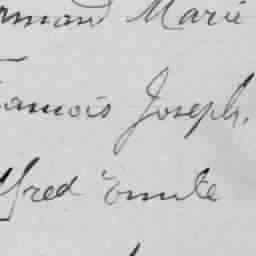 rmand Marie
Francois Joseph,
lfred Emile